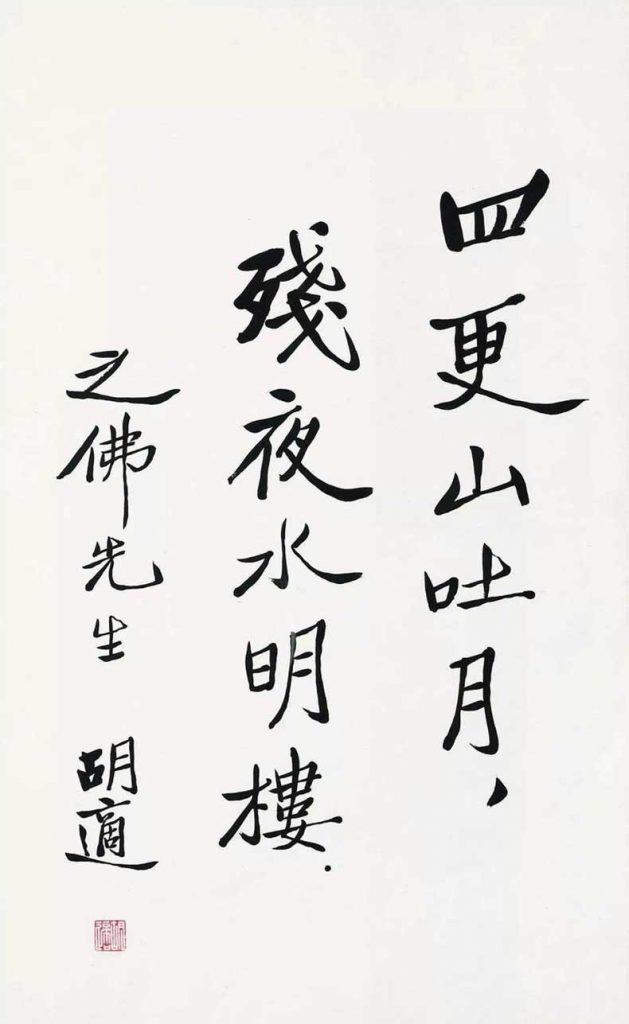 四更山吐月，
殘夜水明樓．
之佛先生 胡適